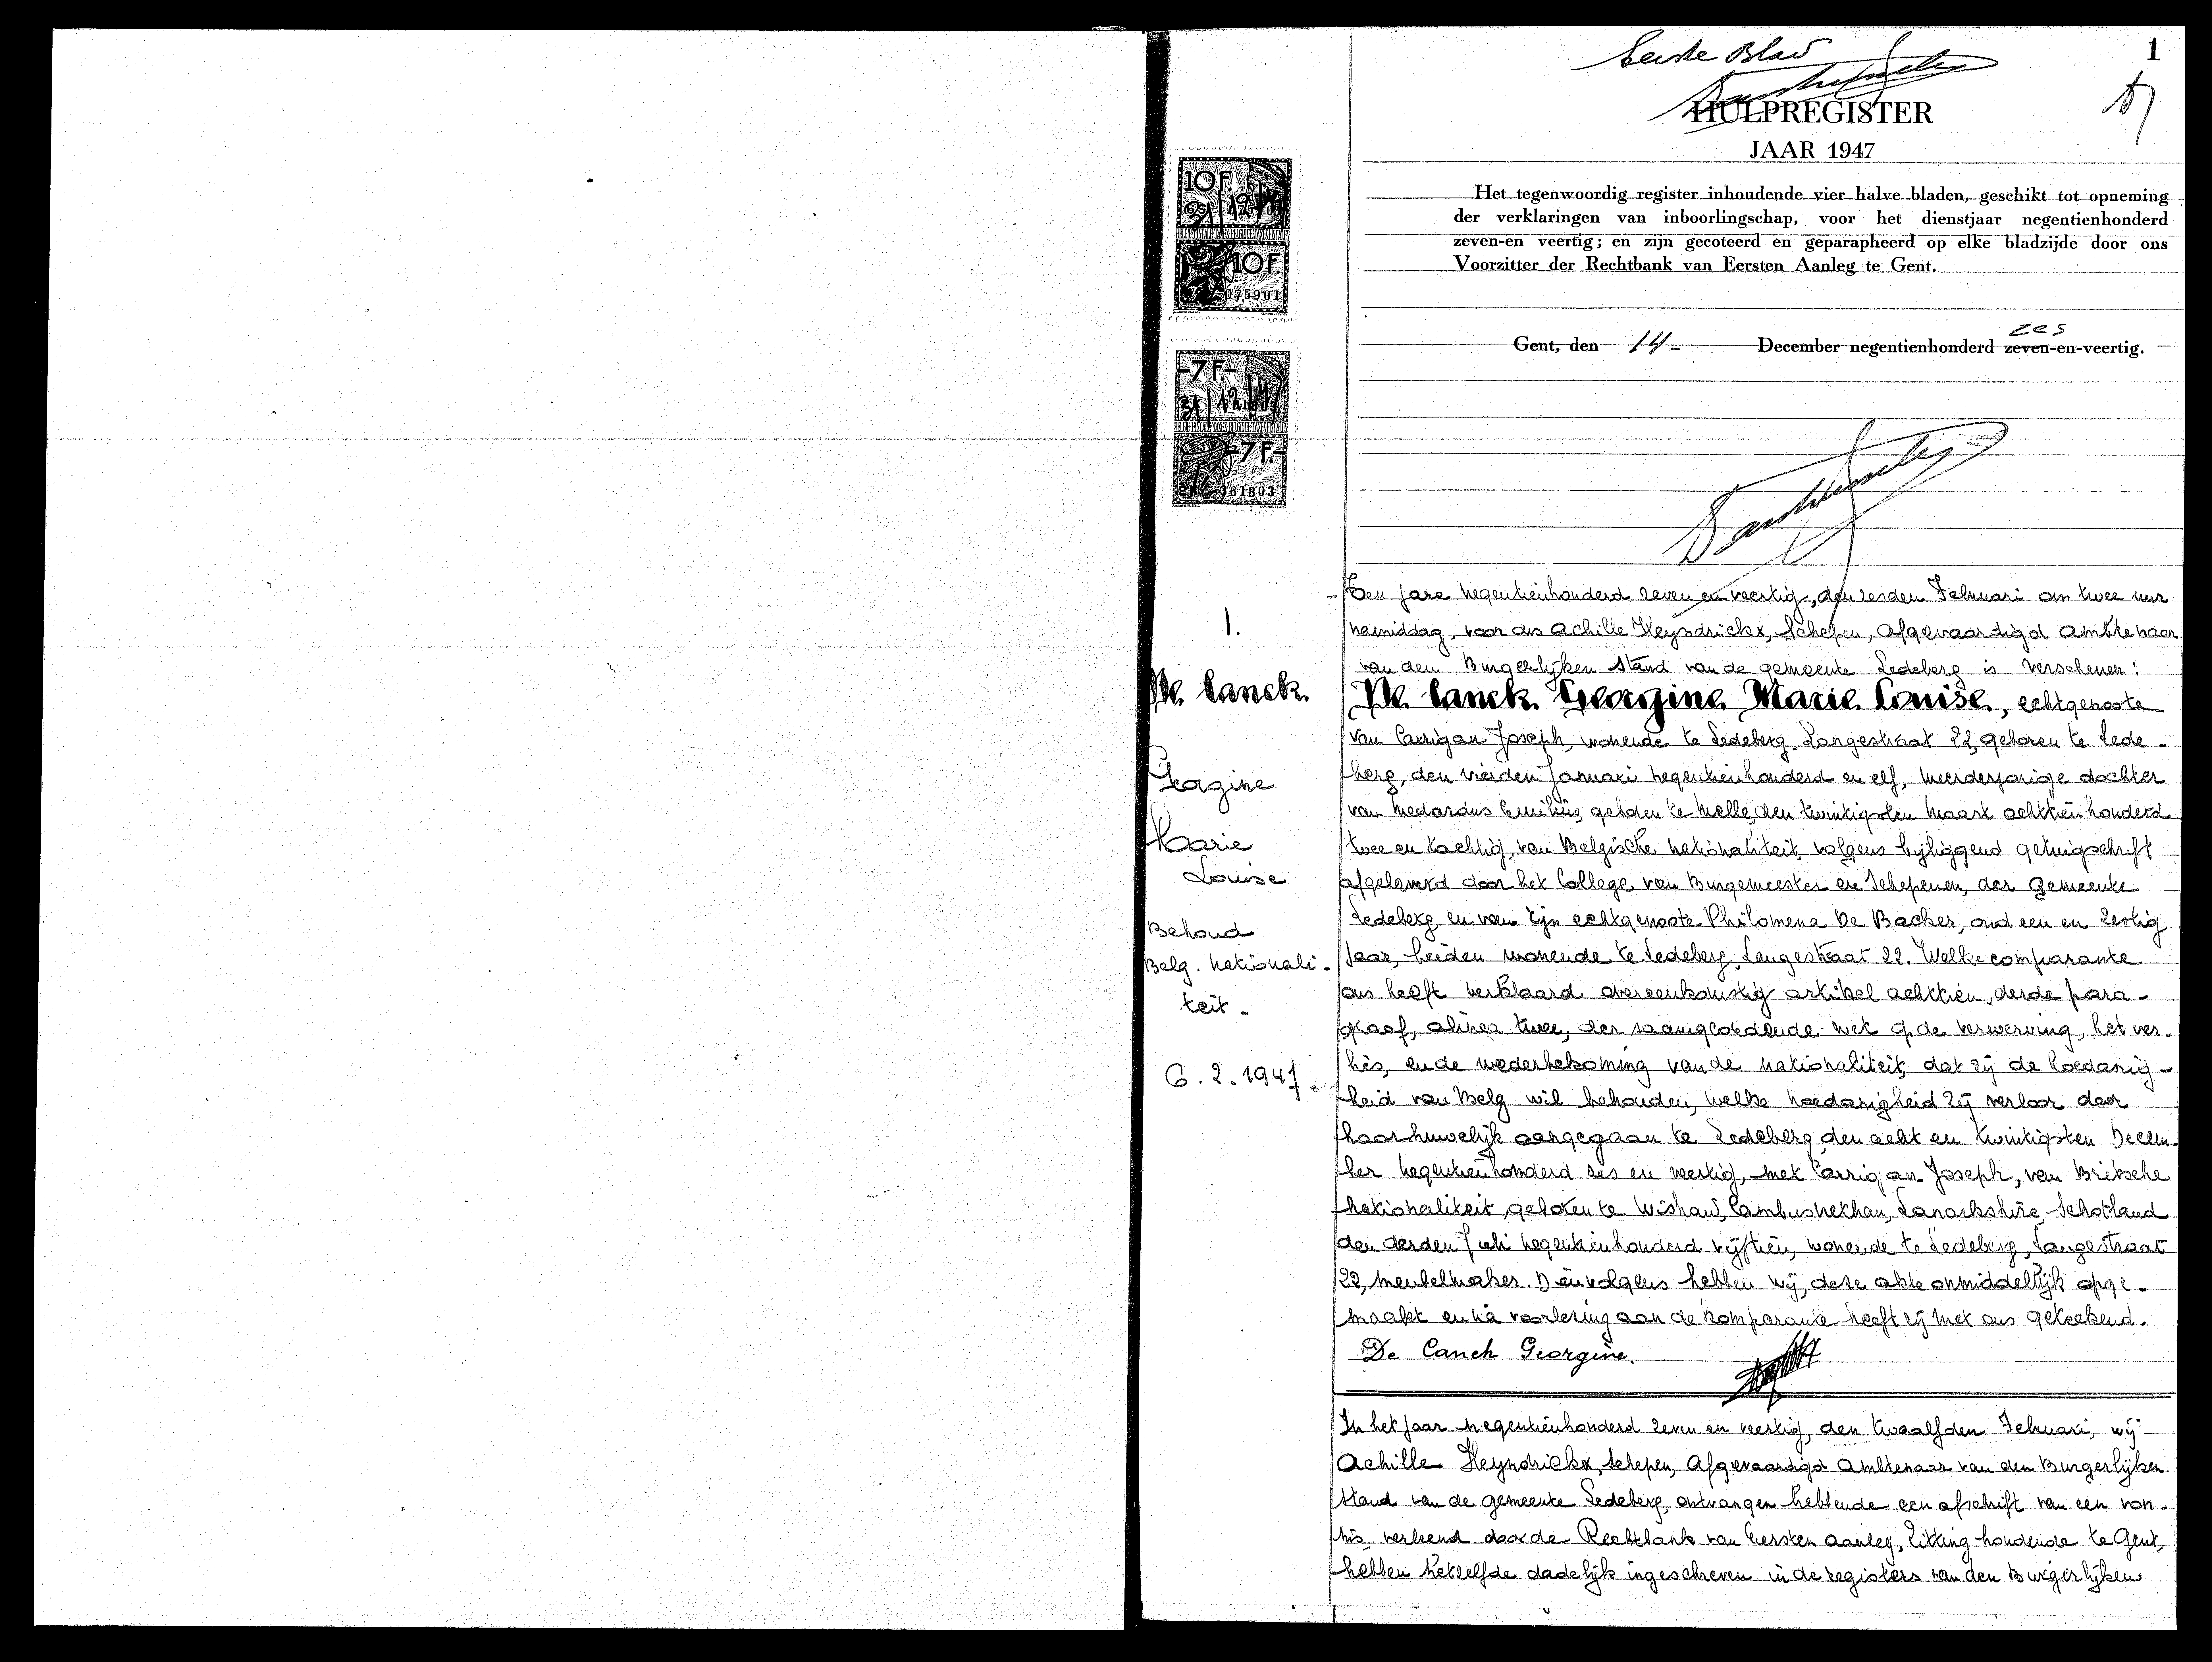 Eerste Blad
1
HULPREGISTER
JAAR 1947
Het tegenwoordig register inhoudende vier halve bladen, geschikt tot opneming
der verklaringen van inboorlingschap, voor het dienstjaar negentienhonderd
zeven-en veertig; en zijn gecoteerd en geparapheerd op elke bladzijde door ons
Voorzitter der Rechtbank van Eersten Aanleg te Gent.
zes
Gent, den 14 December negentienhonderd zeven-en-veertig.
10F.
10F.
075901
-7F.-
-7F.-
361803
1.
De Canck
Georgine
Marie
Louise
Behoud
Belg. nationali-
teit.
6.2.1947
Ten jare negentienhonderd zeven en veertig, den zesden Februari om twee uur
namiddag, voor ons Achille Heyndrickx, Schepen, afgevaardigd ambtenaar
van den Burgerlijken Stand van de gemeente Ledeberg is verschenen:
De Canck Georgine Marie Louise, echtgenoote
van Carrigan Joseph, wonende te Ledeberg Langestraat 22, geboren te Lede-
berg, den vierden Januari negentienhonderd en elf, meerderjarige dochter
van Medardus Emilius, geboren te Melle, den twintigsten Maart achttienhonderd
twee en tachtig, van Belgische nationaliteit, volgens bijliggend getuigschrift
afgeleverd door het College van Burgemeester en Schepenen, der Gemeente
Ledeberg en van zijn echtgenoote Philomena De Backer, oud een en zestig
jaar, beiden wonende te Ledeberg, Langestraat 22. Welke comparante
ons heeft verklaard overeenkomstig artikel achttien, derde para-
graaf, alinea twee, der saamgeordende wet op de verwerving, het ver-
lies, en de wederbekoming van de nationaliteit, dat zij de hoedanig-
heid van Belg wil behouden, welke hoedanigheid zij verloor door
haar huwelijk aangegaan te Ledeberg, den acht en twintigsten Decem-
ber negentienhonderd zes en veertig, met Carrigan Joseph, van Britsche
nationaliteit, geboren te Wishaw, Cambusnethan, Lanarkshire, Schotland
den derden Juli negentienhonderd vijftien, wonende te Ledeberg, Langestraat
22, meubelmaker. Dienvolgens hebben wij, deze akte onmiddellijk opge-
maakt en na voorlezing aan de komparante heeft zij met ons geteekend.
De Canck Georgine.
In het jaar negentienhonderd zeven en veertig, den twaalfden Februari, wij
Achille Heyndrickx, Schepen, Afgevaardigd Ambtenaar van den Burgerlijken
Stand van de gemeente Ledeberg, ontvangen hebbende een afschrift van een von-
nis verleend door de Rechtbank van Eersten aanleg, Zitting houdende te Gent,
hebben hetzelfde dadelijk ingeschreven in de registers van den Burgerlijken